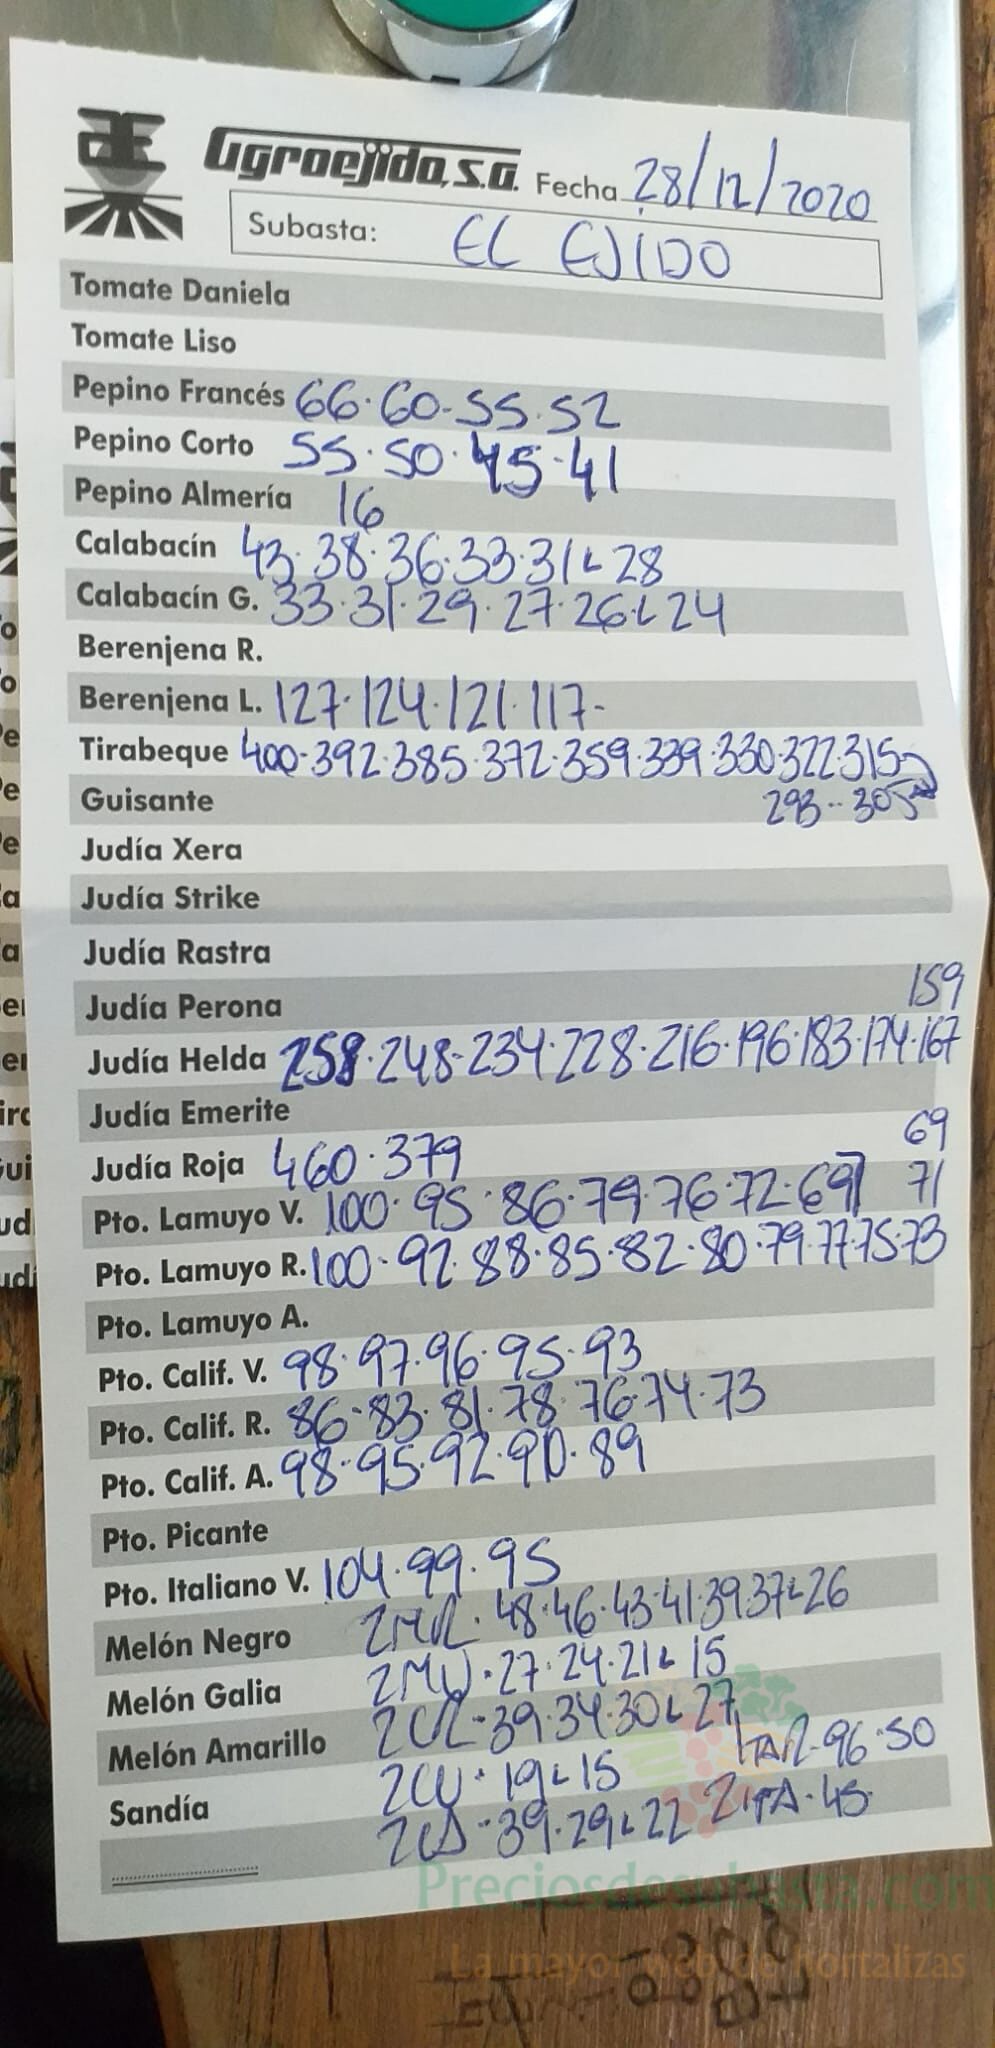 Agroejido, S.A. Fecha 28/12/2020
Subasta: EL EJIDO
Tomate Daniela
Tomate Liso
Pepino Francés 66.60-55.52
Pepino Corto 55.50.45.41
Pepino Almería 16
Calabacín 43.38.36.33.31L28
Calabacín G. 33.31.29.27.26L24
Berenjena R.
Berenjena L. 127.124.121.117-
Tirabeque 400-392.385.372.359.339.330.322.315
Guisante 293--305
Judía Xera
Judía Strike
Judía Rastra
Judía Perona 159
Judía Helda 258.248-234.228.216.196.183.174.167
Judía Emerite
Judía Roja 460.379 69
Pto. Lamuyo V. 100.95.86.79.76.72.69 71
Pto. Lamuyo R. 100.92.88.85.82.80.79.77.75.73
Pto. Lamuyo A.
Pto. Calif. V. 98.97.96.95.93
Pto. Calif. R. 86-83.81.78.76.74.73
Pto. Calif. A. 98.95.92.90.89
Pto. Picante
Pto. Italiano V. 104.99.95
Melón Negro 2MR.48.46.43.41.39.37L26
Melón Galia 2MV.27.24.21L15
Melón Amarillo 2CR-39.34.30L27
2CV.19L15 TAR-96.50
Sandía
2CA-39.29L22 2IPA.45
Preciosdesubasta.com
La mayor web de hortalizas